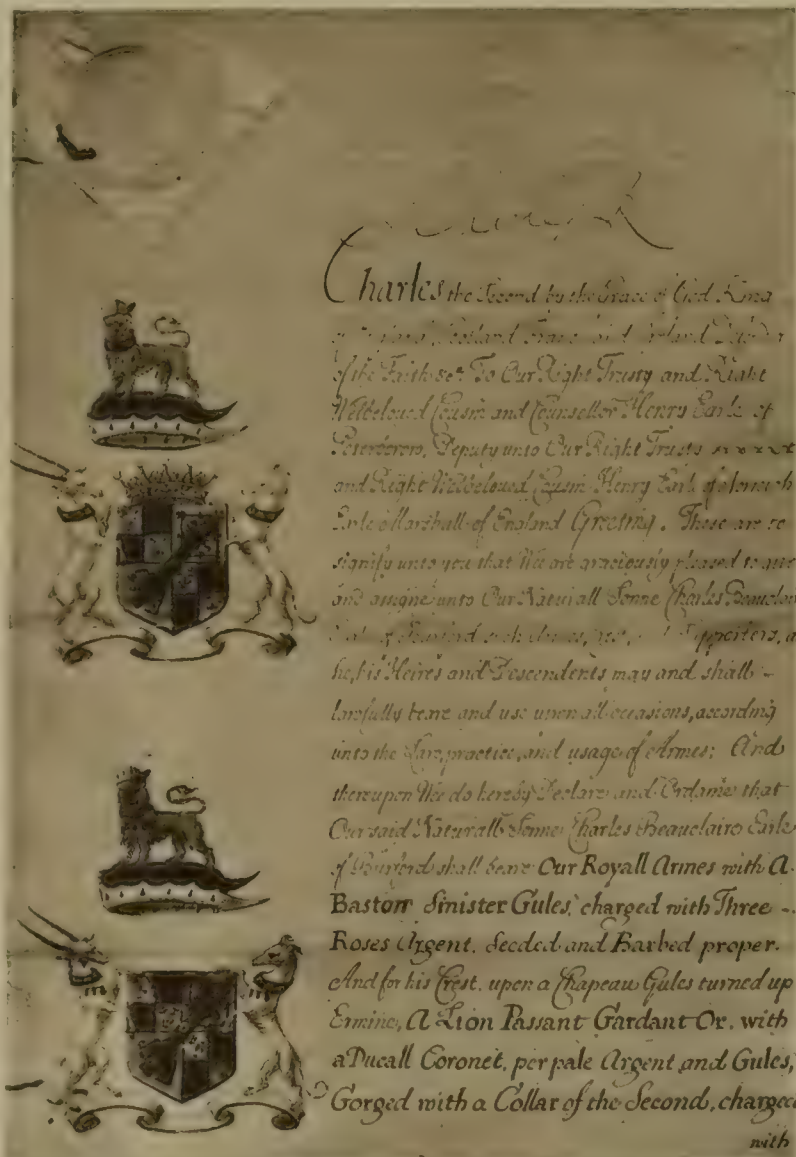 Charles the Second by the Grace of God King
of Scotland France and Ireland
of the Faith &c. To Our Right Trusty and Right
Welbeloued Cousin and Counsellor Henry Earle of
Peterborow, Deputy unto Our Right Trusty x x x x x
and Right Welbeloued Cousin Henry Earl of Norwich
Earle Marshall of England Greeting. These are to
signify unto you that We are graciously pleased to giue
and assigne unto Our Naturall Sonne Charles
Supporters, a
he, his Heires and Descendents may and shall -
lawfully beare and use upon all occasions, according
unto the Law, practice, and usage of Armes: And
thereupon We do hereby Declare and Ordaine that
Our said Naturall Sonne Charles Beauclaire Earle
of Burford shall beare Our Royall Armes with A
Baston Sinister Gules, charged with Three -
Roses Argent, Seeded and Barbed proper.
And for his Crest, upon a Chapeau Gules turned up
Ermine, A Lion Passant Gardant Or, with
a Ducall Coronet, per pale Argent and Gules,
Gorged with a Collar of the Second, charged
with